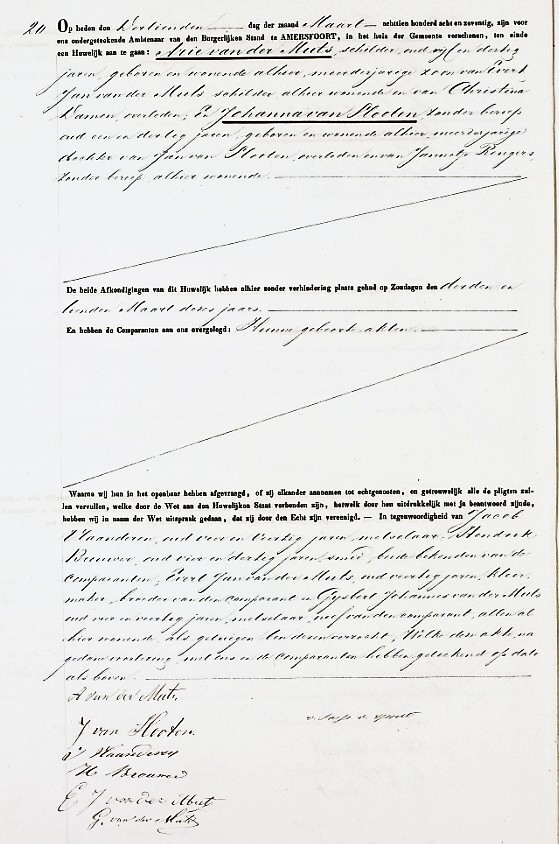 20 Op heden den Dertienden dag der maand Maart achttien honderd acht en zeventig, zijn voor
ons ondergeteekende Ambtenaar van den Burgerlijken Stand te AMERSFOORT, in het huis der Gemeente verschenen, ten einde
een Huwelijk aan te gaan: Arie van der Muts, schilder, oud vijf en dertig
jaren, geboren en wonende alhier, meerderjarige zoon van Evert
Jan van der Muts schilder alhier wonende en van Christina
Damen, overleden; En Johanna van Slooten zonder beroep
oud een en dertig jaren, geboren en wonende alhier, meerderjarige
dochter van Jan van Slooten, overleden en van Jannetje Rengers,
zonder beroep, alhier wonende.
De beide Afkondigingen van dit Huwelijk hebben alhier zonder verhindering plaats gehad op Zondagen den derden en
tienden Maart dezes jaars.
En hebben de Comparanten aan ons overgelegd: Hunne geboorte akten
Waarna wij hun in het openbaar hebben afgevraagd, of zij elkander aannemen tot echtgenooten, en getrouwelijk alle de pligten zul-
len vervullen, welke door de Wet aan den Huwelijken Staat verbonden zijn, hetwelk door hen uitdrukkelijk met ja beantwoord zijnde,
hebben wij in naam der Wet uitspraak gedaan, dat zij door den Echt zijn vereenigd. — In tegenwoordigheid van Jacob
Vlaanderen, oud vier en veertig jaren, metselaar, Hendrik
Brouwer, oud vier en dertig jaren, smid, beide bekenden van de
comparanten; Evert Jan van der Muts, oud veertig jaren, kleer-
maker, broeder van den comparant en Gysbert Johannes van der Muts
oud vier en veertig jaren, metselaar, neef van den comparant, allen al-
hier wonende, als getuigen ten dezen verzocht, Welke deze akte, na
gedane voorlezing, met ons en de comparanten hebben geteekend op dato
als boven.
A van der Muts
J van Slooten
J Vlaanderen
H Brouwer
E J van der Mut
G. van der Muts